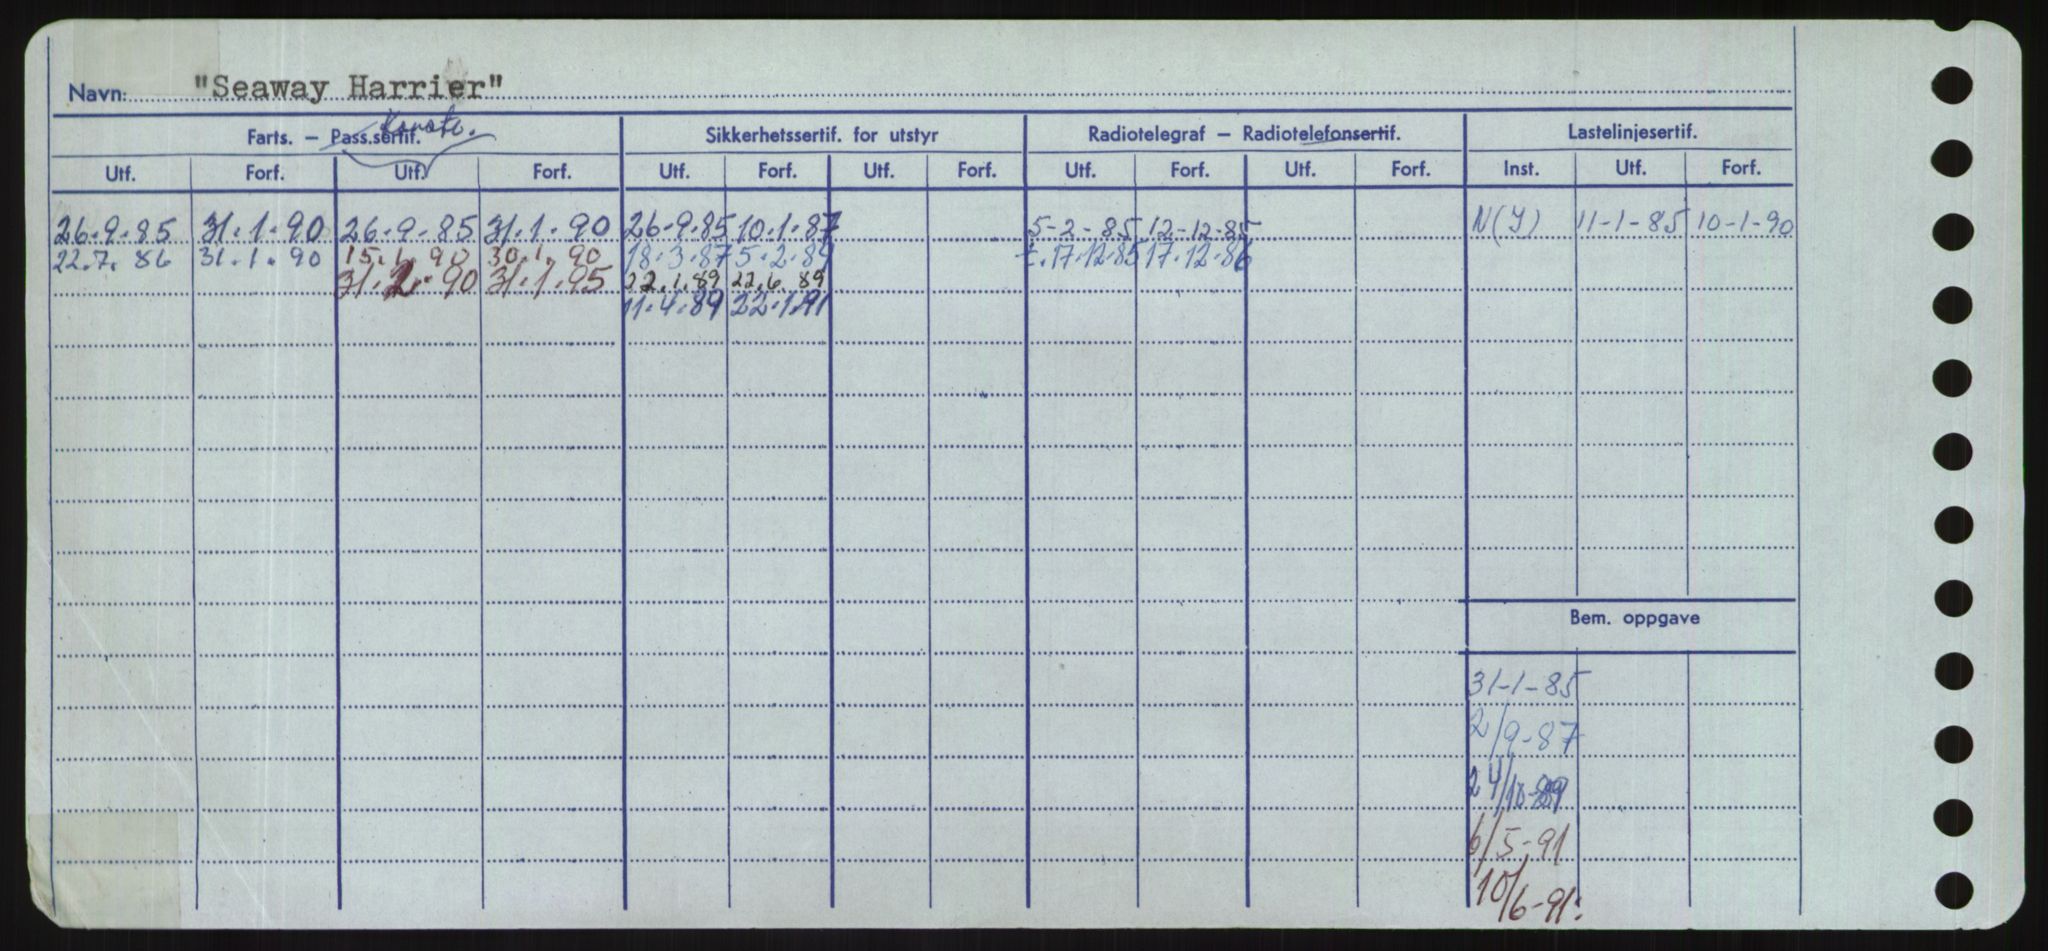 Navn: "Seaway Harrier"
Farts. – Pass.sertif. Konstr. Sikkerhetssertif. for utstyr Radiotelegraf – Radiotelefonsertif. Lastelinjesertif.
Utf. Forf. Utf. Forf. Utf. Forf. Utf. Forf. Utf. Forf. Utf. Forf. Inst. Utf. Forf.
26.9.85 31.1.90 26.9.85 31.1.90 26.9.85 10.1.87 5-2-85 12-12-85 N(I) 11-1-85 10-1-90
22.7.86 31.1.90 15.1.90 30.1.90 18.3.87 5.2.89 t.17.12.85 17.12.86
31.1.90 31.1.95 22.1.89 22.6.89
11.4.89 22.1.91
Bem. oppgave
31-1-85
2/9-87
24/10-89
6/5-91
10/6-91.